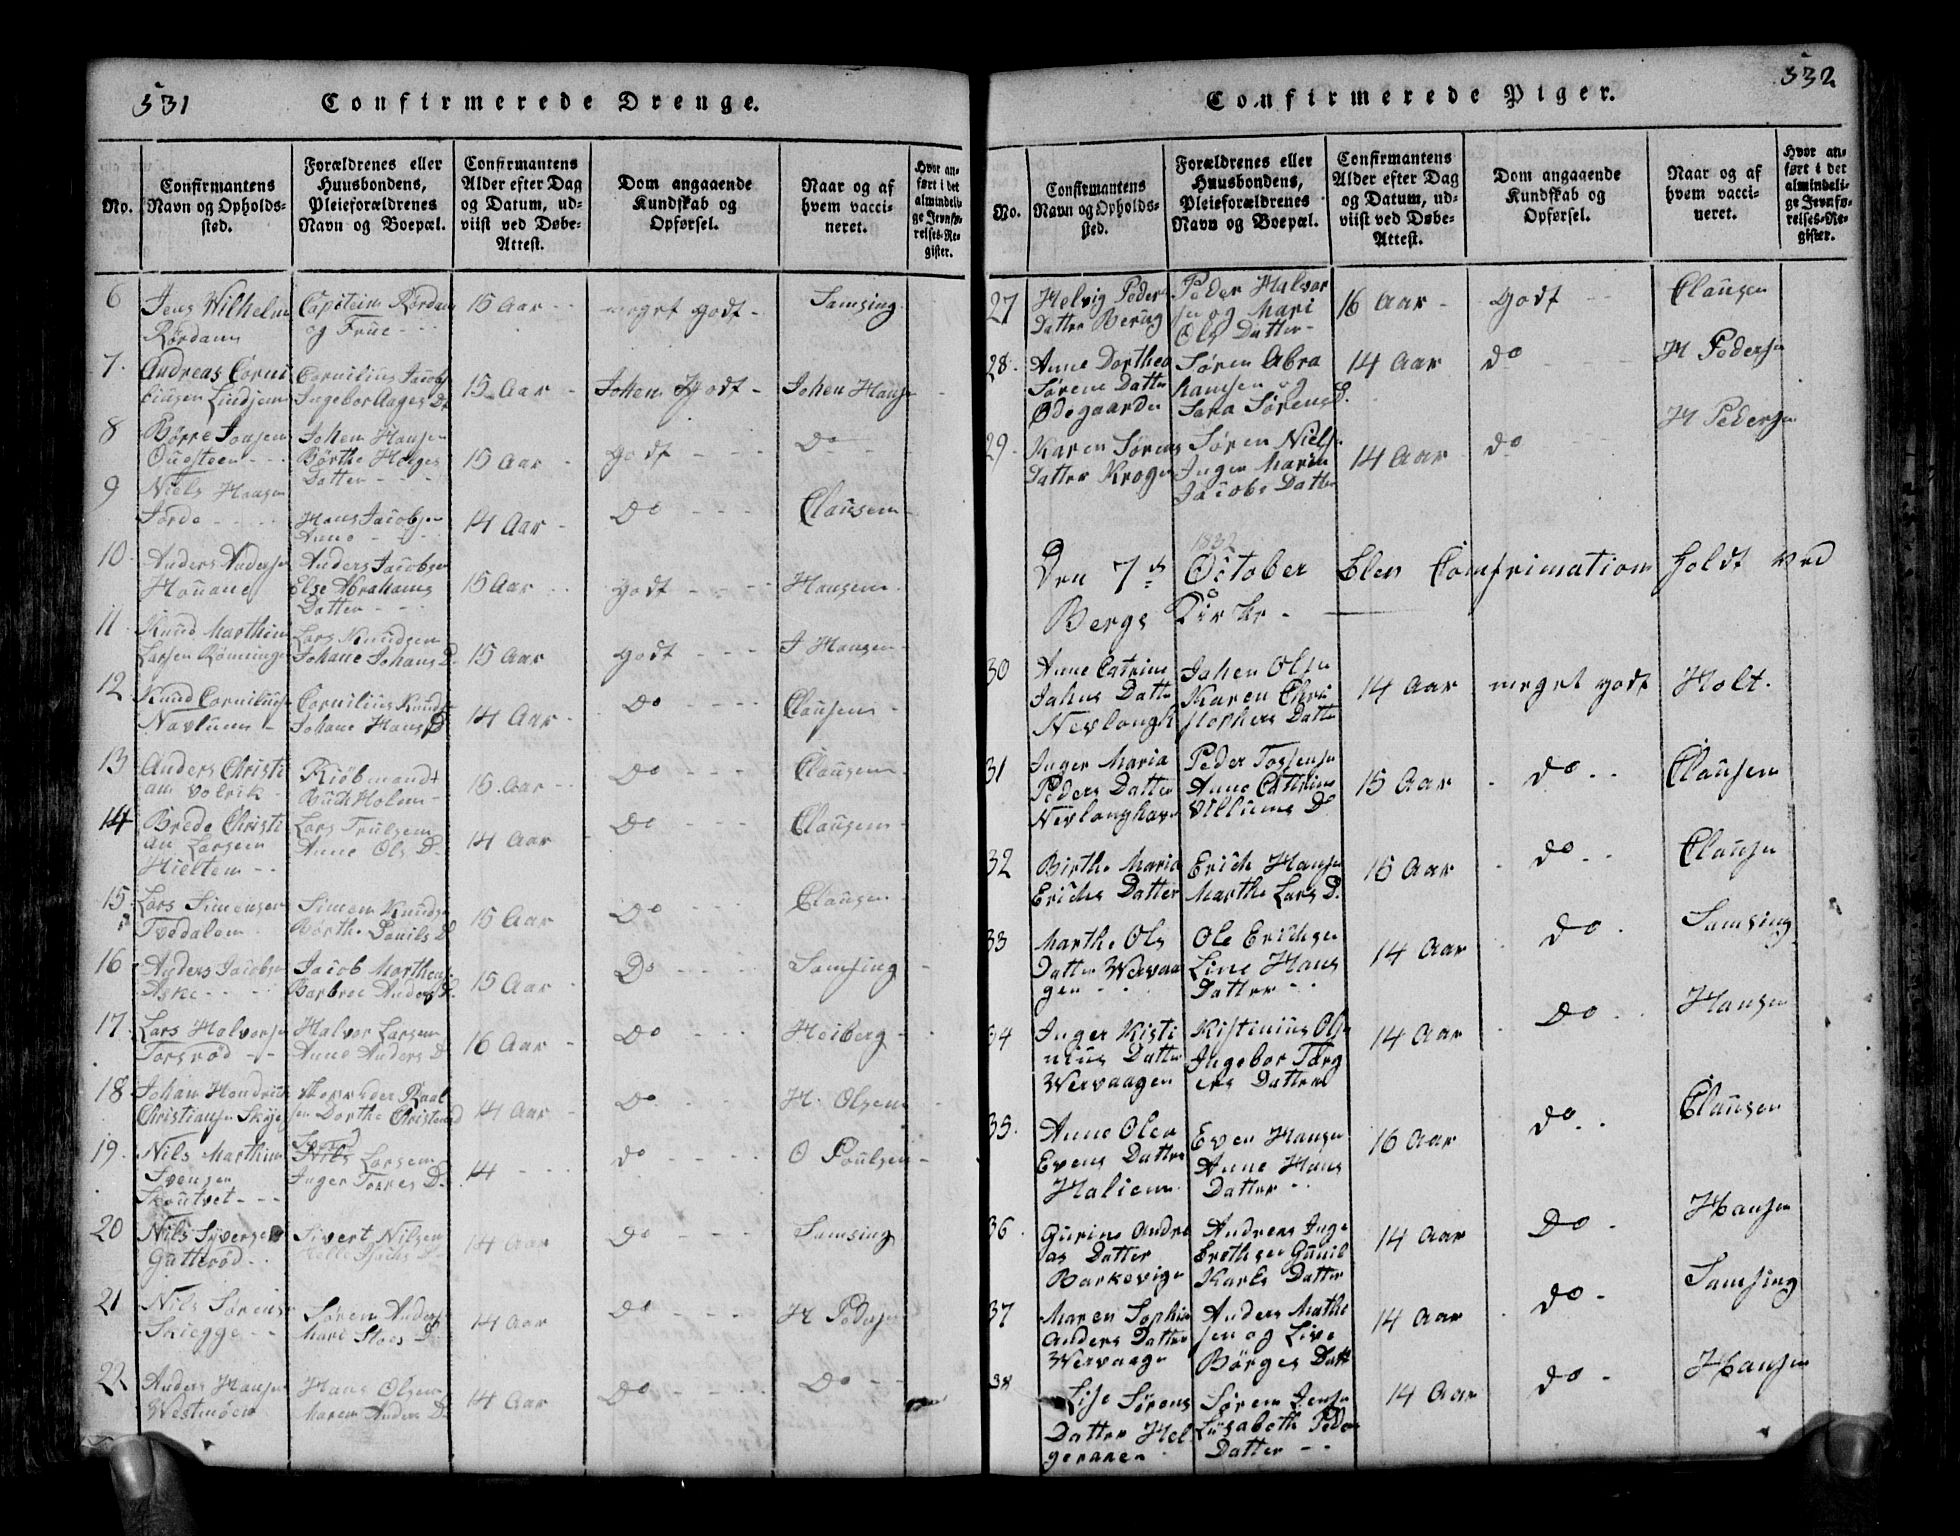 531
Confirmerede Drenge.
No.
Confirmantens
Navn og Opholds-
sted.
Forældrenes eller
Huusbondens,
Pleieforældrenes
Navn og Boepæl.
Confirmantens
Alder efter Dag
og Datum, ud-
viist ved Døbe-
Attest.
Dom angaaende
Kundskab og
Opførsel.
Naar og af
hvem vacci-
neret.
Hvor an-
ført i det
almindeli-
ge Jevnfø-
relses-Re-
gister.
6
Jens Wilhelm
Rørdam
Capitein Rørdam
og Frue - - -
15 Aar - -
meget godt -
Samsing
7.
Andreas Corni
Cornilius Jacobs
Ingebor Aages D
15 Aar -
Johen Hans
8
Børre
Johen Hansen
Børthe
Datter - - -
15 Aar -
godt - - -
Do
9
Niels Hansen
Hans Jacobsen
Anne - - -
14 Aar -
Do - - -
Clausen -
10
Anders Anders
Anders Jacobsen
Else Abrahams
Datter - - -
15 Aar - -
godt - - -
Hansen
11
Knud Marthin
Larsen
Lars Knudsen
Johane Johans D.
15 Aar
godt - - -
J Hansen -
12
Knud Cornilius
Cornilius Knuds
Johane Hans D
14 Aar -
Do - - -
Clausen -
13
Anders Christi
an Volrik -
Kiøbmandt
Buch Holm -
15 Aar - -
Do - - -
Clausen -
14
Brede Christi
an Larsen
Lars Trulsen
Anne Ols D.
14 Aar
Do - - -
Clausen -
15
Lars Simensen
Tvedalen
Simen Knuds
Børthe Danils D
15 Aar
Do - - -
Clausen -
16
Anders Jacobsen
Aske - - -
Jacob Marthens
Barbroe Anders D.
15 Aar -
Do - - -
Samsing -
17.
Lars Halvorsen
Torsrød - -
Halvor Larsen
Anne Anders D
16 Aar -
Do - - -
Heiberg -
18
Johan Hendrich
Christiansen
Dorthe
14 Aar -
Do - - -
H. Olsen
19
Nils Marthin
Svensen
- - -
Svend
Larsen
Inger Torres D.
14 - - -
Do - - -
O Poulsen -
20
Nils Syversen
Gatterød -
Sivert Nilsen
14 Aar
Do - - -
Samsing
21
Nils Sørens
Skiegge - -
Søren Anders
14 Aar
Do - - -
H Pedersen
22
Anders Hansen
Hans Olsen
Maren Anders D
14 Aar
Do - - -
Do - -
532
Confirmerede Piger.
No.
Confirmantens
Navn og Opholds-
sted.
Forældrenes eller
Huusbondens,
Pleieforældrenes
Navn og Boepæl.
Confirmantens
Alder efter Dag
og Datum, ud-
viist ved Døbe-
Attest.
Dom angaaende
Kundskab og
Opførsel.
Naar og af
hvem vacci-
neret.
Hvor an-
ført i det
almindeli-
ge Jevnfø-
relses-Re-
gister.
27
Helvig Peders
Datter
Peder Halvor
sen og Mari
Ols Datter -
16 Aar -
Godt
Clausen
28.
Anne Dorthea
Sørens Datter
Ødegaarden
Søren Abra
hamsen og
Sara Sørens D.
14 Aar
do
H Pedersen
29.
Karen Sørens
Datter Krogen
Søren Niels
Inger Maria
Jacobs Datter
14 Aar
do
H Pedersen
1832
Den 7de October blev Comfrimation holdt ved
Bergs Kirke -
30
Anne Catrine
Johns Datter
Nevlongh
Johen Olsn
Karen Chri
stophers Datter
14 Aar
meget godt
Holt.
31
Inger Maria
Peders Datter
Nevlonghavn
Peder
Anne Cathrine
Villums D.
15 Aar -
do - -
Clausen
32
Birthe Maria
Erichs Datter
Erich Hansen
Marthe Lars D.
15 Aar -
do - -
Clausen
33
Marthe Ols
Datter Wervaa
gen - -
Ole Erichsen
Line Hans
Datter - -
14 Aar -
do -
Samsing
34
Inger Kisti
nius Datter
Wervaagen
Kistinius Olsn
Ingebor Torg
ers Datter
14 Aar -
Do -
Hansen
35.
Anne Olea
Evens Datter
Halien
Even Hansen
Anne Hans
Datter - -
16 Aar
do - -
Clausen
36
Gurine Andre
as Datter
Barkevigen
Andreas Inge
brethsen Gunil
Karls Datter
14 Aar
Do -
Hansen
37
Maren Sophia
Anders Datter
Wervaagen
Anders Mathi
sen og Live
Børges Datt
14 Aar -
do -
Samsing
38
Lise Sørens
Datter Hel
geraaen
Søren Jensen
Lisabeth Peder
Datter - -
14 Aar -
do -
Hansen